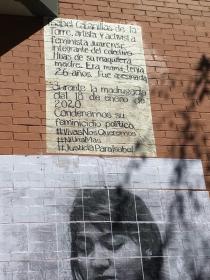 Isabel Cabanillas de la
Torre, artista y activista
feminista juarense
integrante del colectivo
Hijas de su maquilera
madre. Era mamá, tenía
26 años. Fue asesinada
durante la madrugada
del 18 de enero de
2020.
Condenamos su
feminicidio político.
#VivasNosQueremos
#NiUnaMás
#JusticiaParaIsabel